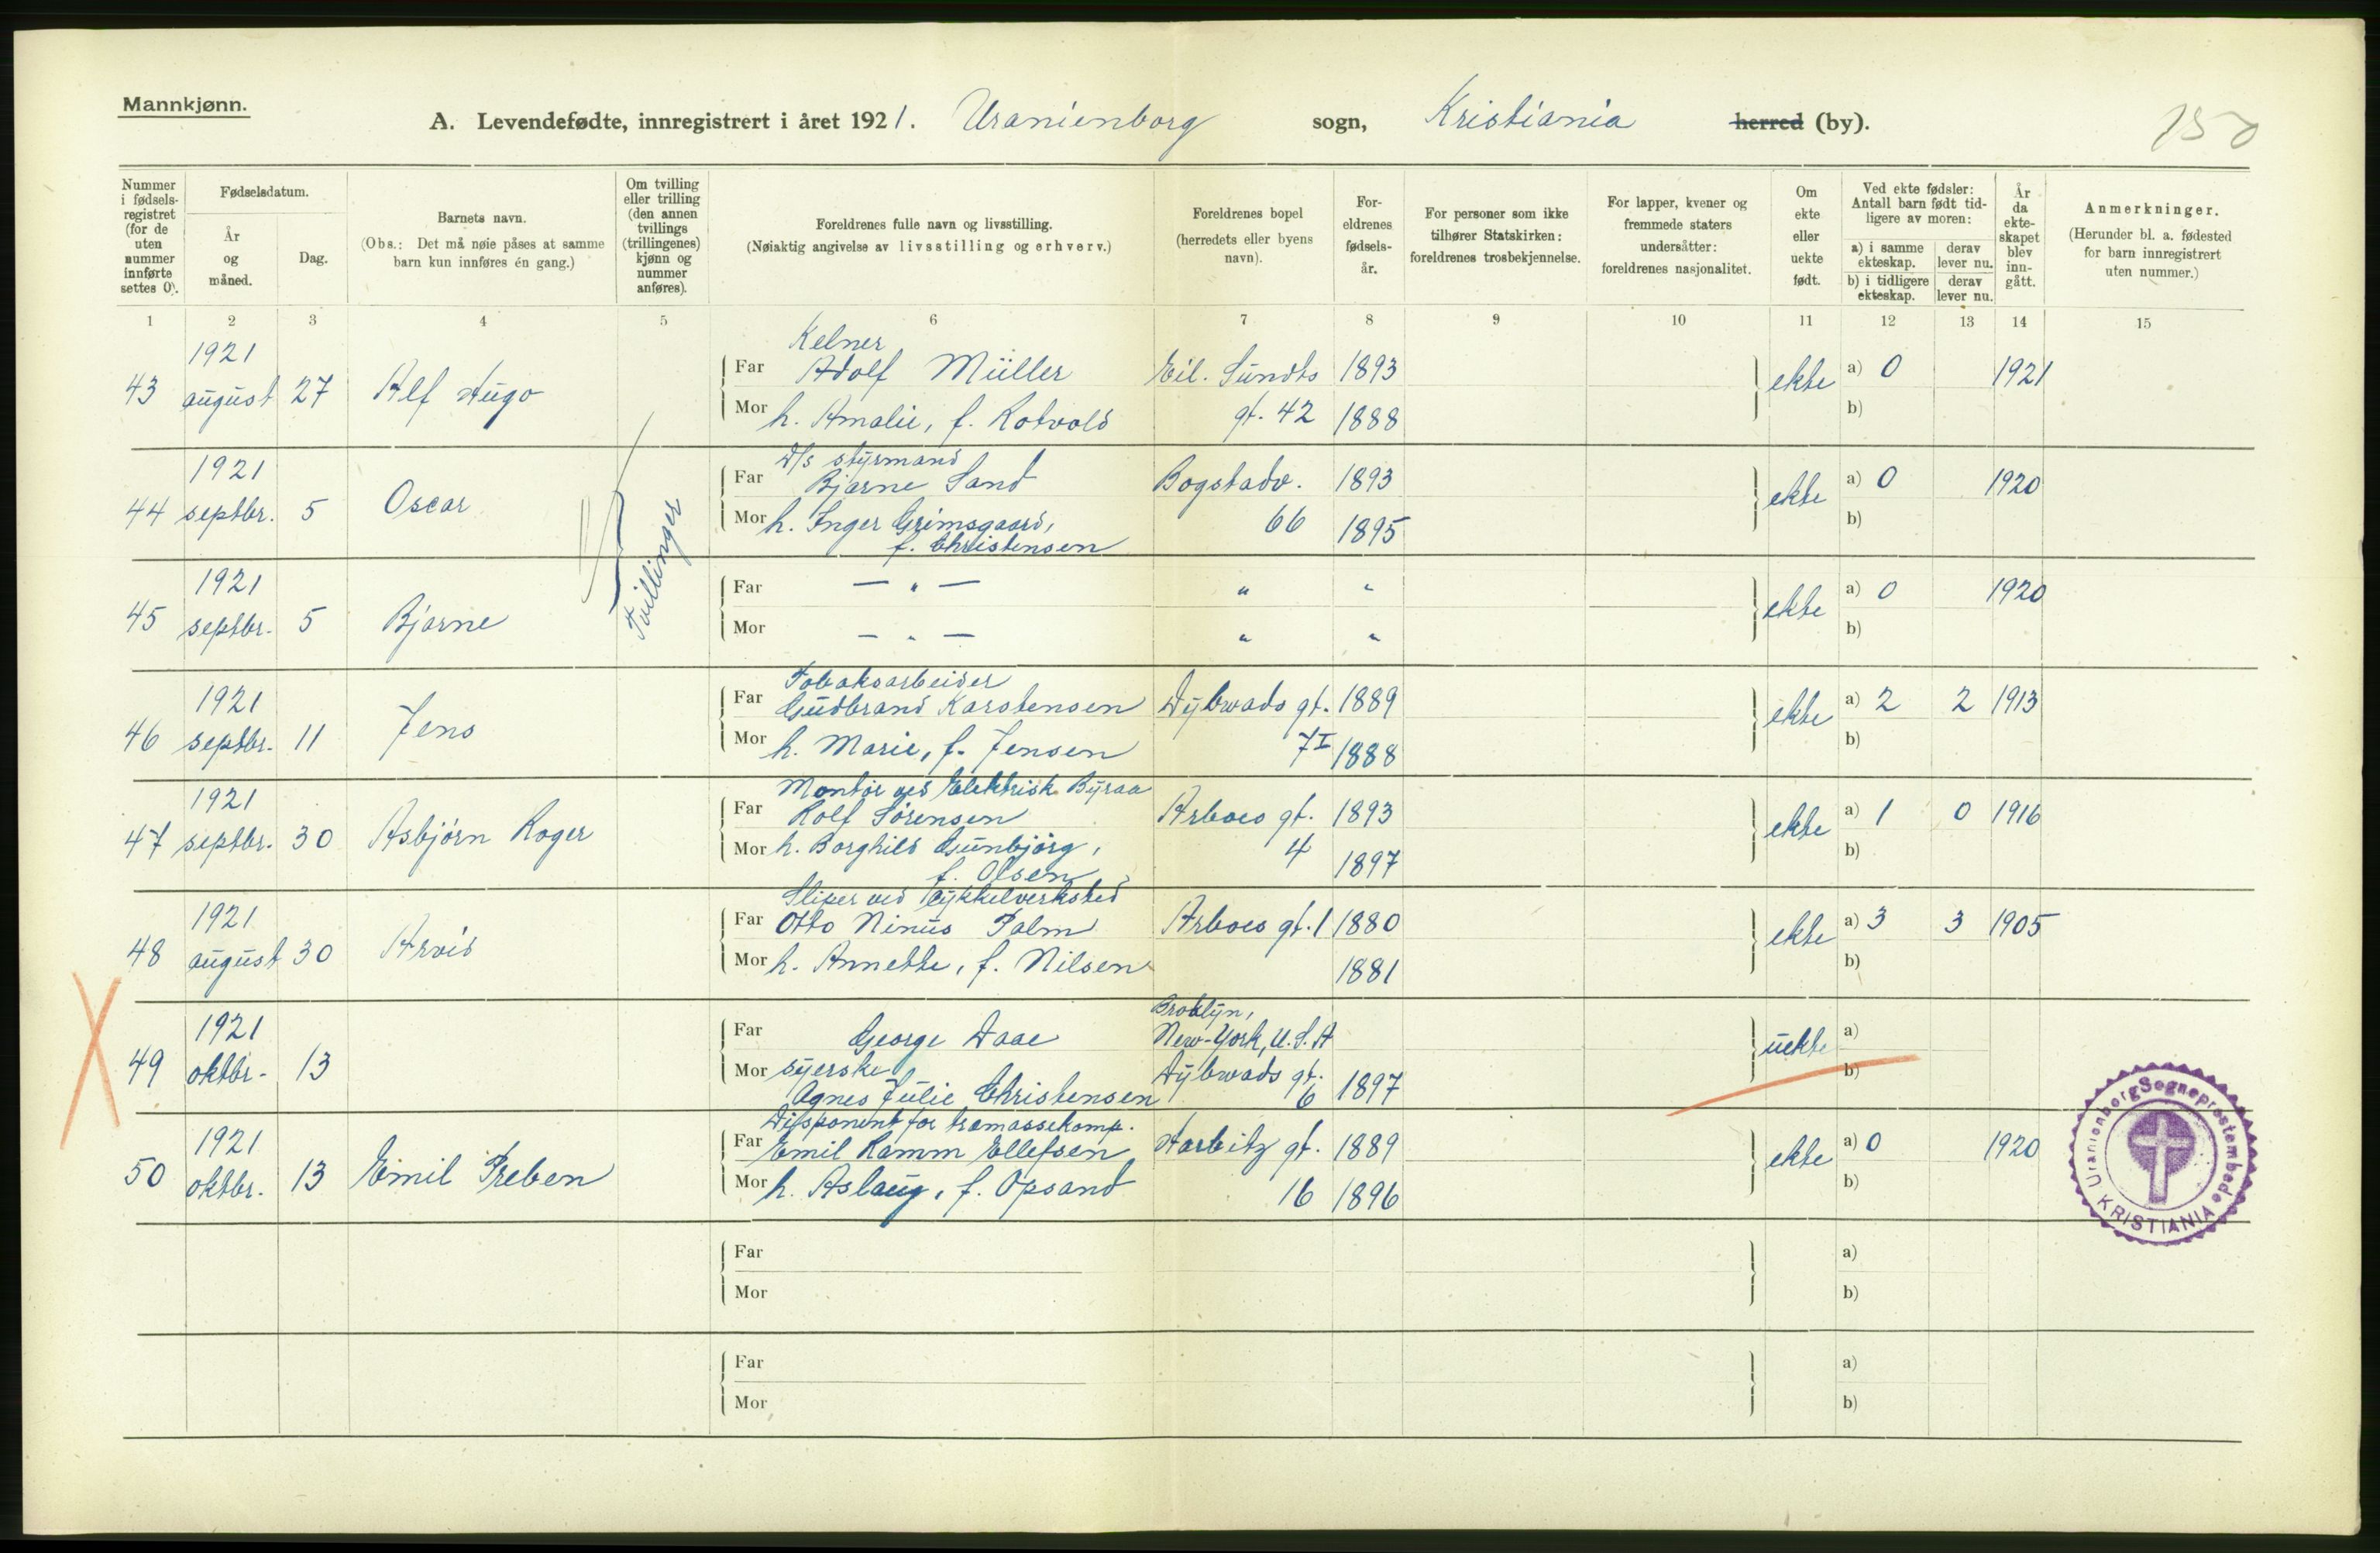 Mannkjønn.
A. Levendefødte, innregistrert i året 1921. Uranienborg sogn, Kristiania herred (by).
150
Nummer i fødsels-registret (for de uten nummer innførte settes 0).
Fødselsdatum.
År og måned.
Dag.
Barnets navn.
(Obs.: Det må nøie påses at samme barn kun innføres én gang.)
Om tvilling eller trilling (den annen tvillings (trillingenes) kjønn og nummer anføres).
Foreldrenes fulle navn og livsstilling.
(Nøiaktig angivelse av livsstilling og erhverv.)
Foreldrenes bopel (herredets eller byens navn).
For-eldrenes fødsels-år.
For personer som ikke tilhører Statskirken: foreldrenes trosbekjennelse.
For lapper, kvener og fremmede staters undersåtter: foreldrenes nasjonalitet.
Om ekte eller uekte født.
Ved ekte fødsler: Antall barn født tid-ligere av moren:
a) i samme ekteskap.
derav lever nu.
b) i tidligere ekteskap.
derav lever nu.
År da ekte-skapet blev inn-gått.
Anmerkninger.
(Herunder bl. a. fødested for barn innregistrert uten nummer.)
1 2 3 4 5 6 7 8 9 10 11 12 13 14 15
Kelner
1921 Far Adolf Müller Eil. Sundts 1893 a) 0 1921
43 august 27 Alf Hugo ekte
Mor h. Amalie, f. Rotvold gt. 42 1888 b)
D/s styrmand
1921 Far Bjarne Sand Bogstadv. 1893 a) 0 1920
44 septbr. 5 Oscar ekte
Mor h. Inger Grimsgaard, 66 1895 b)
f. Christensen
Tvillinger
1921 Far — " — " " a) 0 1920
45 septbr. 5 Bjarne ekte
Mor — " — " " b)
Tobaksarbeider
1921 Far Gudbrand Karstensen Dybwads gt. 1889 a) 2 2 1913
46 septbr. 11 Jens ekte
Mor h. Marie, f. Jensen 7 I 1888 b)
Montør ved Elektrisk Byraa
1921 Far Rolf Sørensen Arboes gt. 1893 a) 1 0 1916
47 septbr. 30 Asbjørn Roger ekte
Mor h. Borghild Gunbjørg, 4 1897 b)
f. Olsen
Sliper ved Cykkelverksted
1921 Far Otto Ninus Palm Arboes gt. 1 1880 a) 3 3 1905
48 august 30 Arvid ekte
Mor h. Annette, f. Nilsen 1881 b)
Broklyn,
1921 Far George Daae New-York, U.S.A a)
49 oktbr. 13 uekte
Mor syerske Dybwads gt. b)
Agnes Julie Christensen 6 1897
Disponent for tremassekomp.
1921 Far Emil Ramm Ellefsen Harbitz gt. 1889 a) 0 1920
50 oktbr. 13 Emil Preben ekte
Mor h. Aslaug, f. Opsand 16 1896 b)
Uranienborg Sogneprestembede
KRISTIANIA
Far a)
Mor b)
Far a)
Mor b)